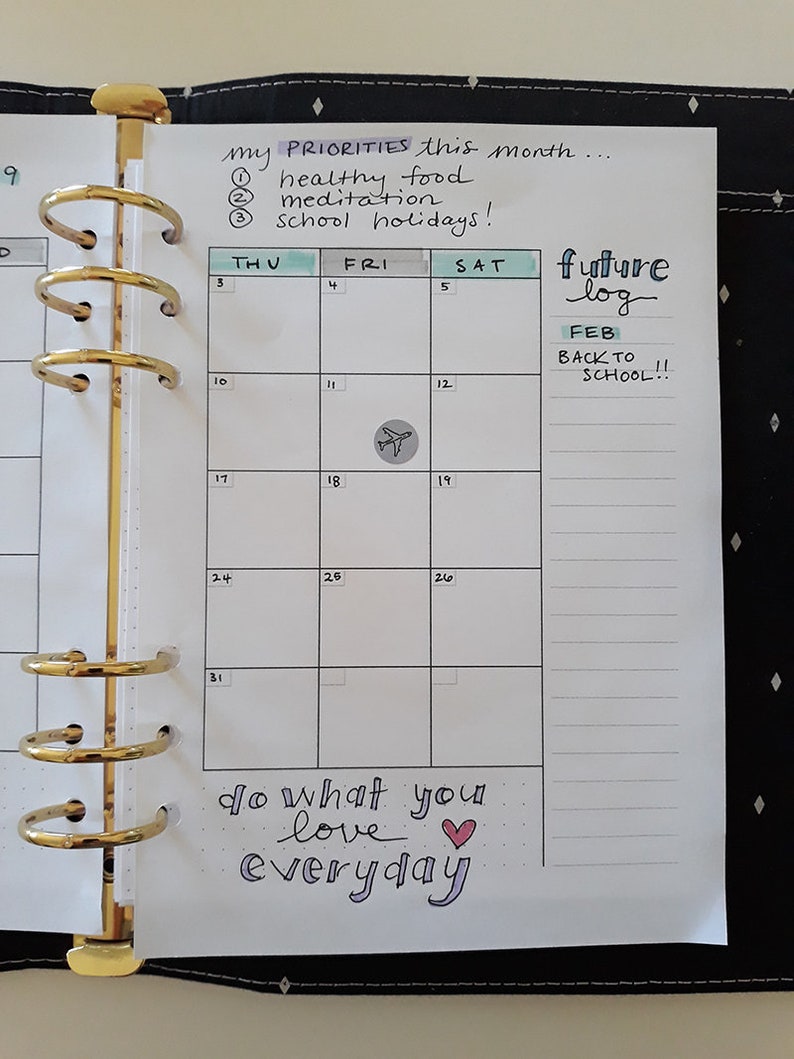 9
D
my PRIORITIES this month ...
① healthy food
② meditation
③ school holidays!
THU FRI SAT
3 4 5
10 11 12
17 18 19
24 25 26
31
future
log
FEB
BACK TO
SCHOOL!!
do what you
love
everyday